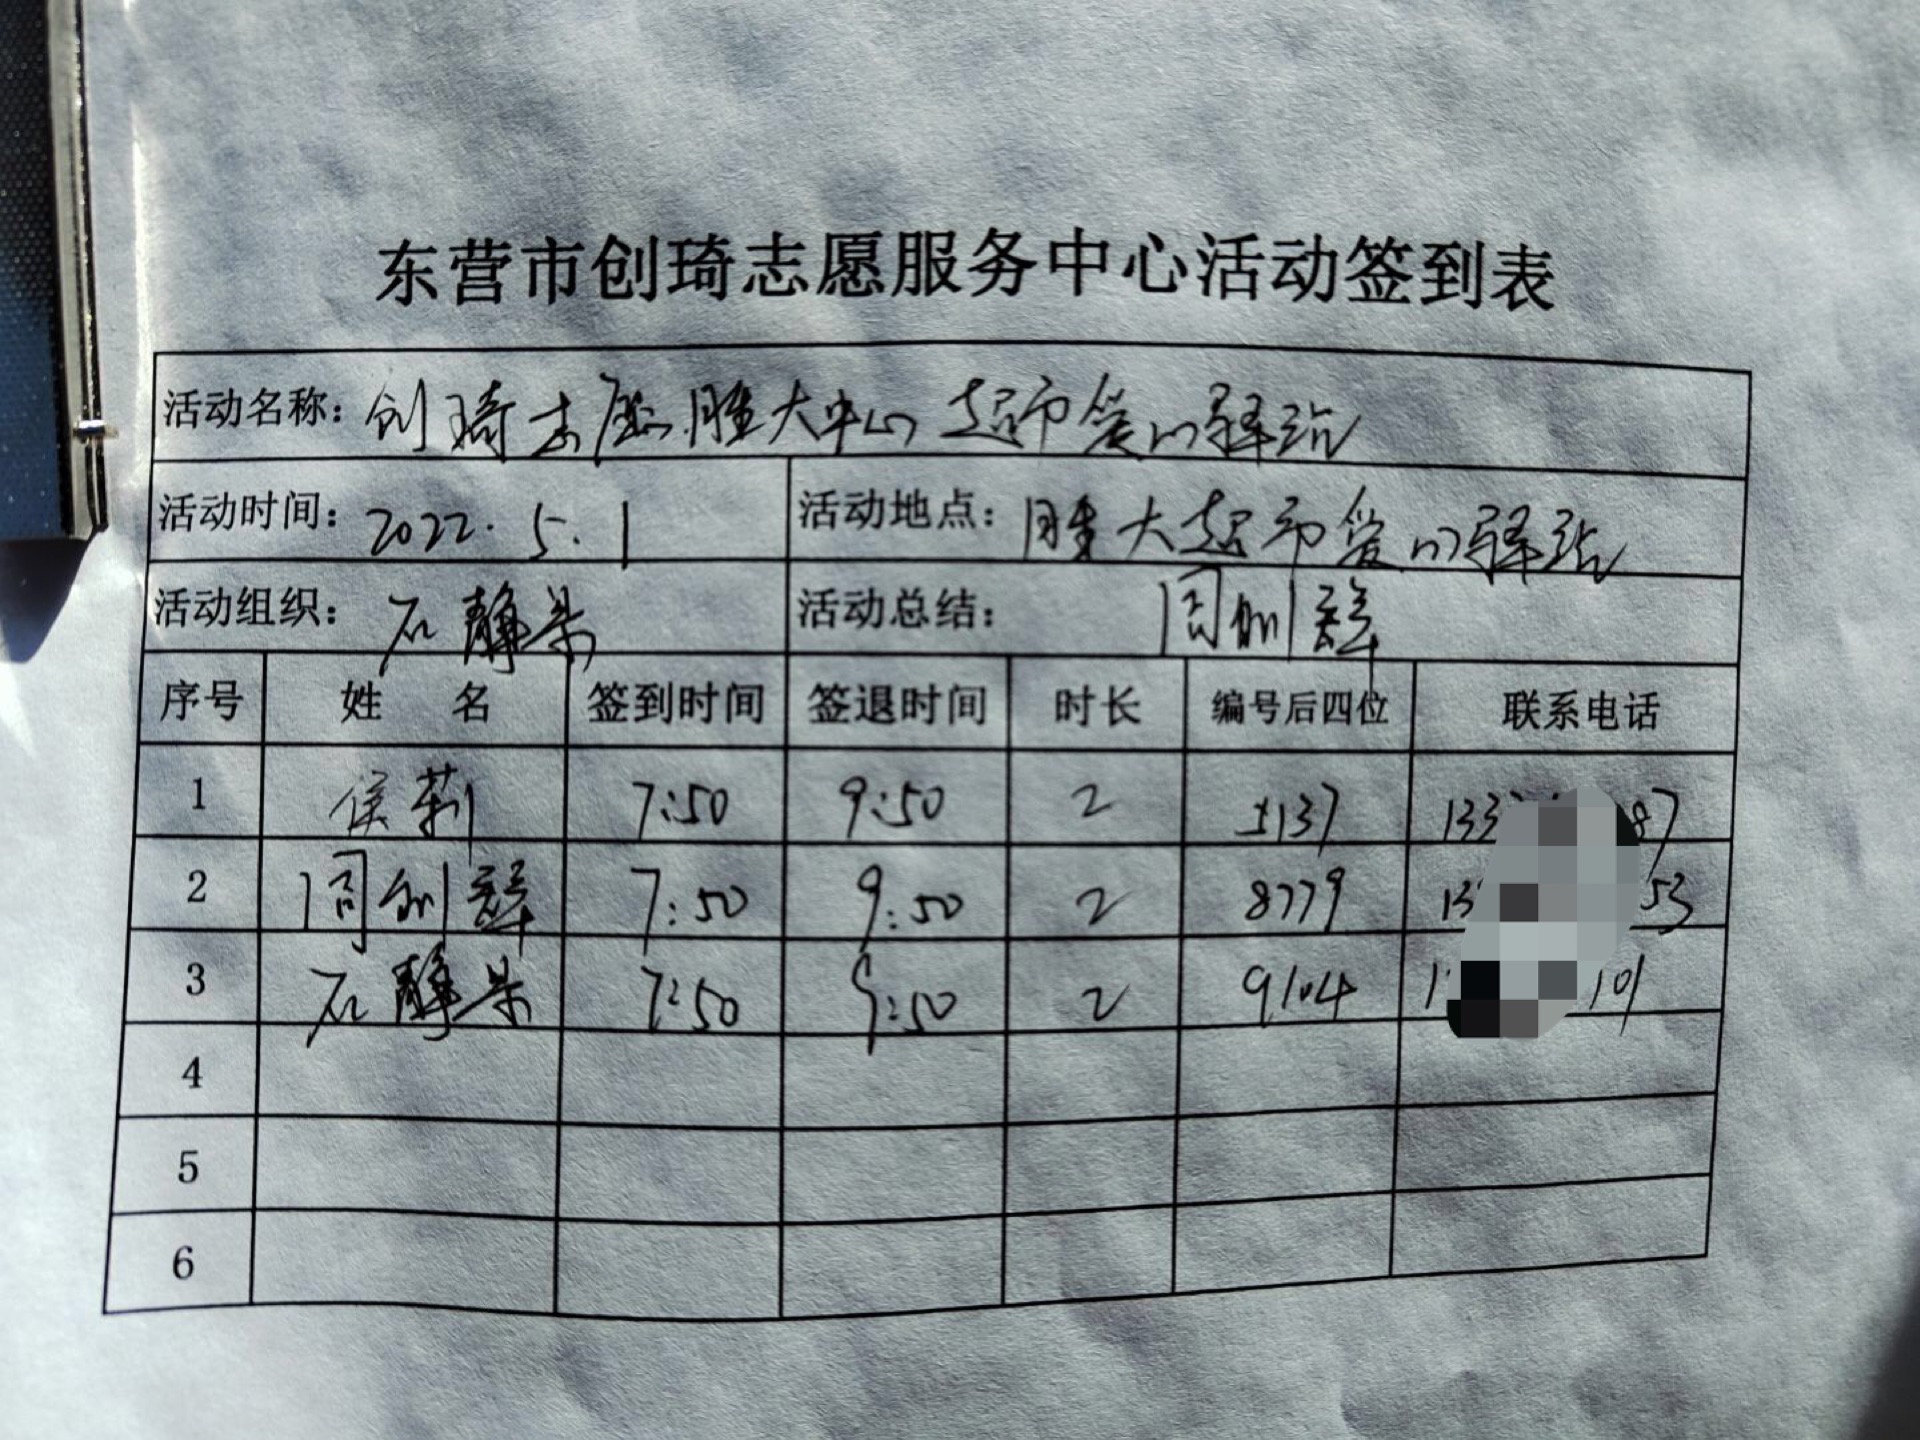 东营市创琦志愿服务中心活动签到表
活动名称: 创琦志愿胜大中心超市爱心驿站
活动时间: 2022.5.1 活动地点: 胜大超市爱心驿站
活动组织: 石静 活动总结: 周
序号 姓 名 签到时间 签退时间 时长 编号后四位 联系电话
1 侯莉 7:50 9:50 2 137 133 87
2 周 7:50 9:50 2 8779 13 53
3 石静 7:50 9:50 2 9104 1 101
4
5
6